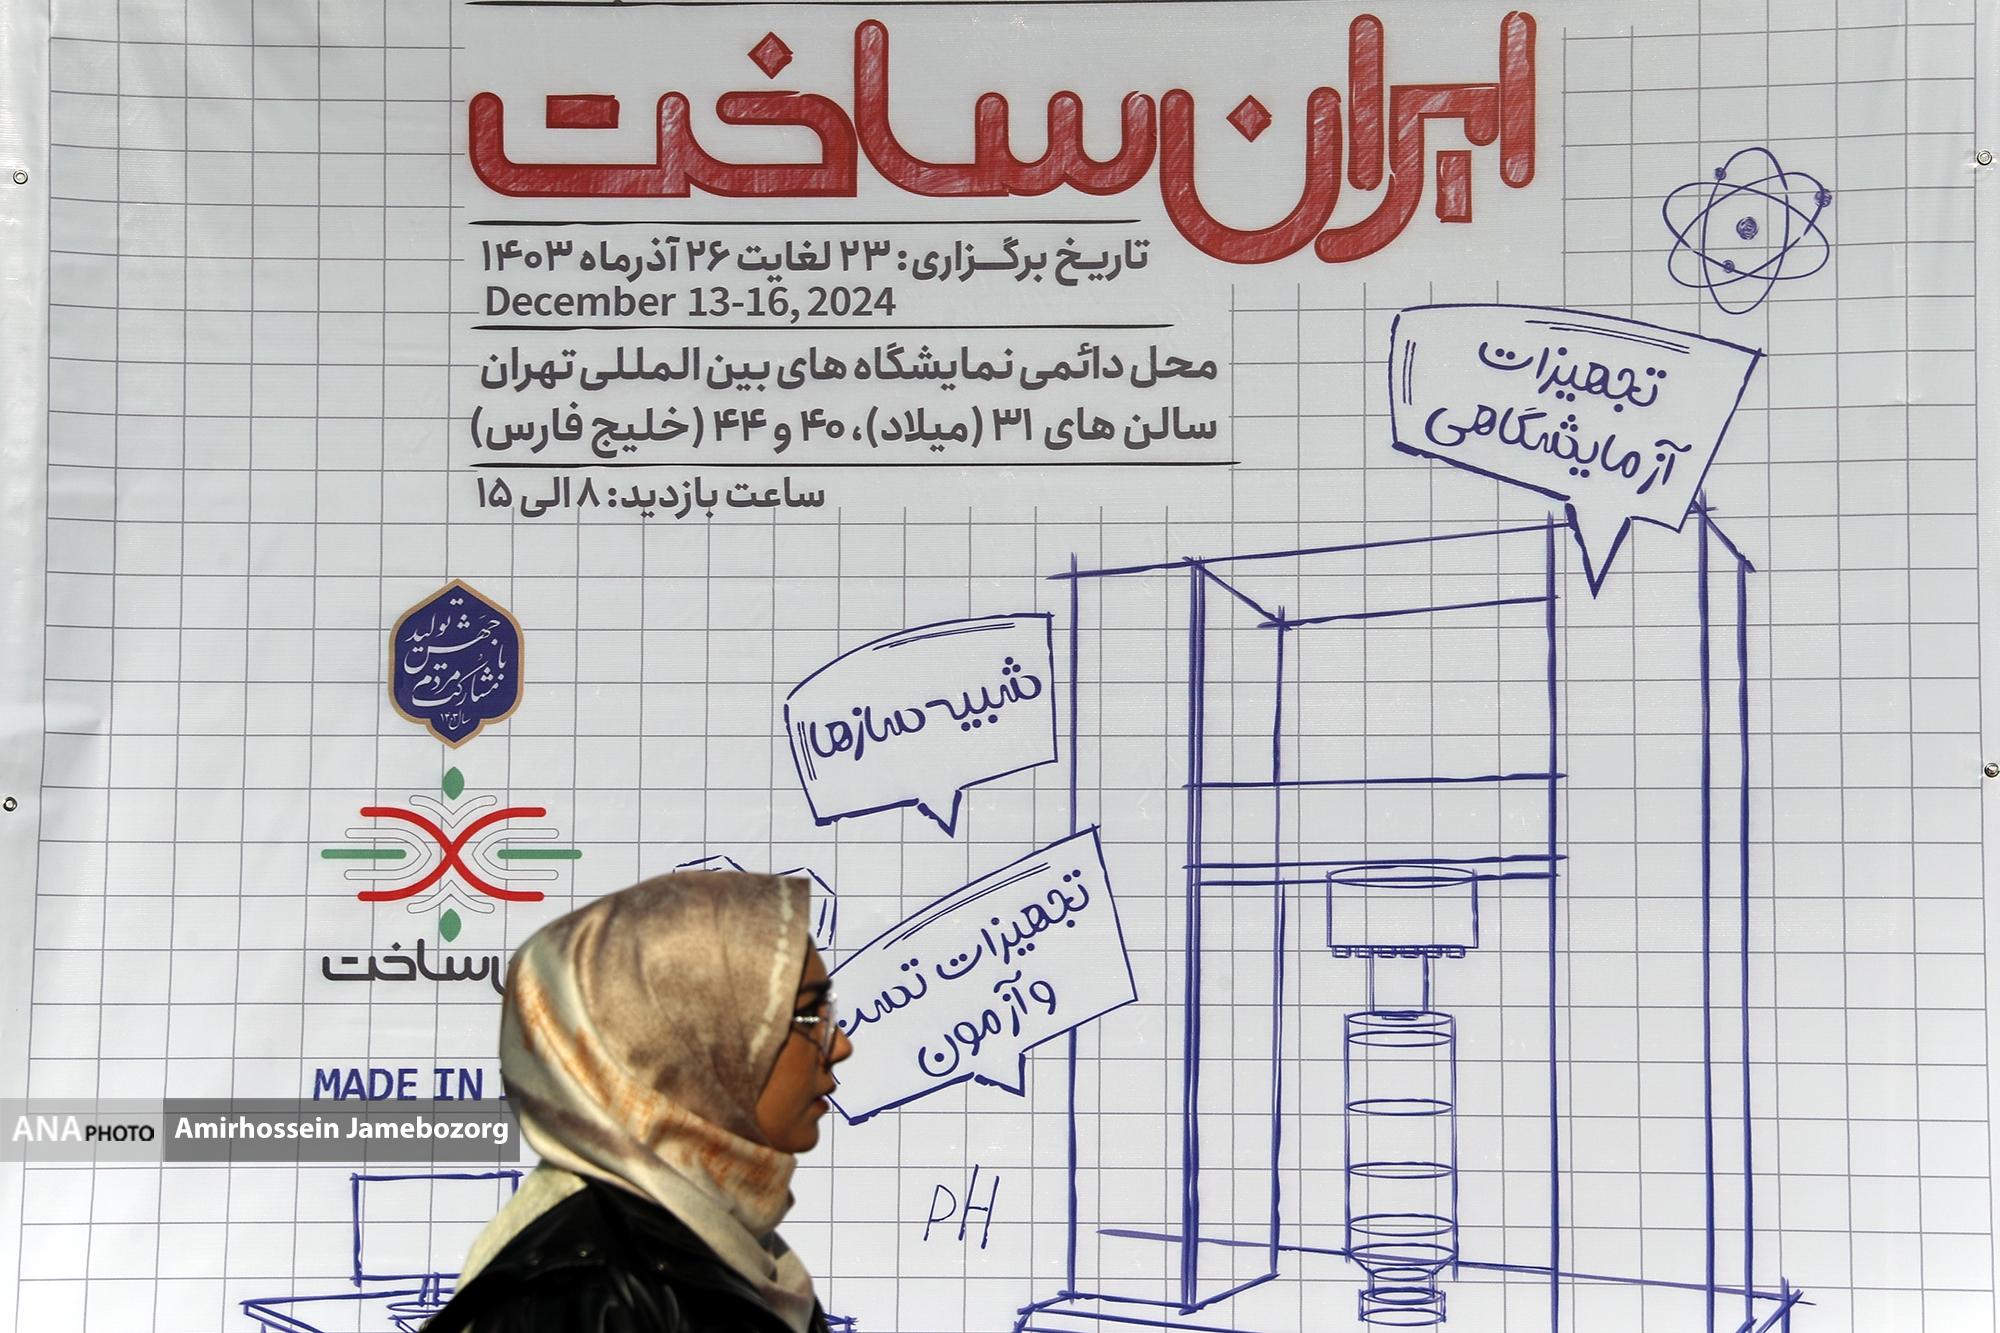 ایران ساخت
تاریخ برگزاری: ۲۳ لغایت ۲۶ آذرماه ۱۴۰۳
December 13-16, 2024
محل دائمی نمایشگاه های بین المللی تهران
سالن های ۳۱ (میلاد)، ۴۰ و ۴۴ (خلیج فارس)
ساعت بازدید: ۸ الی ۱۵
تجهیزات
آزمایشگاهی
شبیه سازها
تجهیزات تست
و آزمون
جهش تولید
با مشارکت مردم
سال ۱۴۰۳
ساخت
MADE IN
ANA PHOTO Amirhossein Jamebozorg
PH